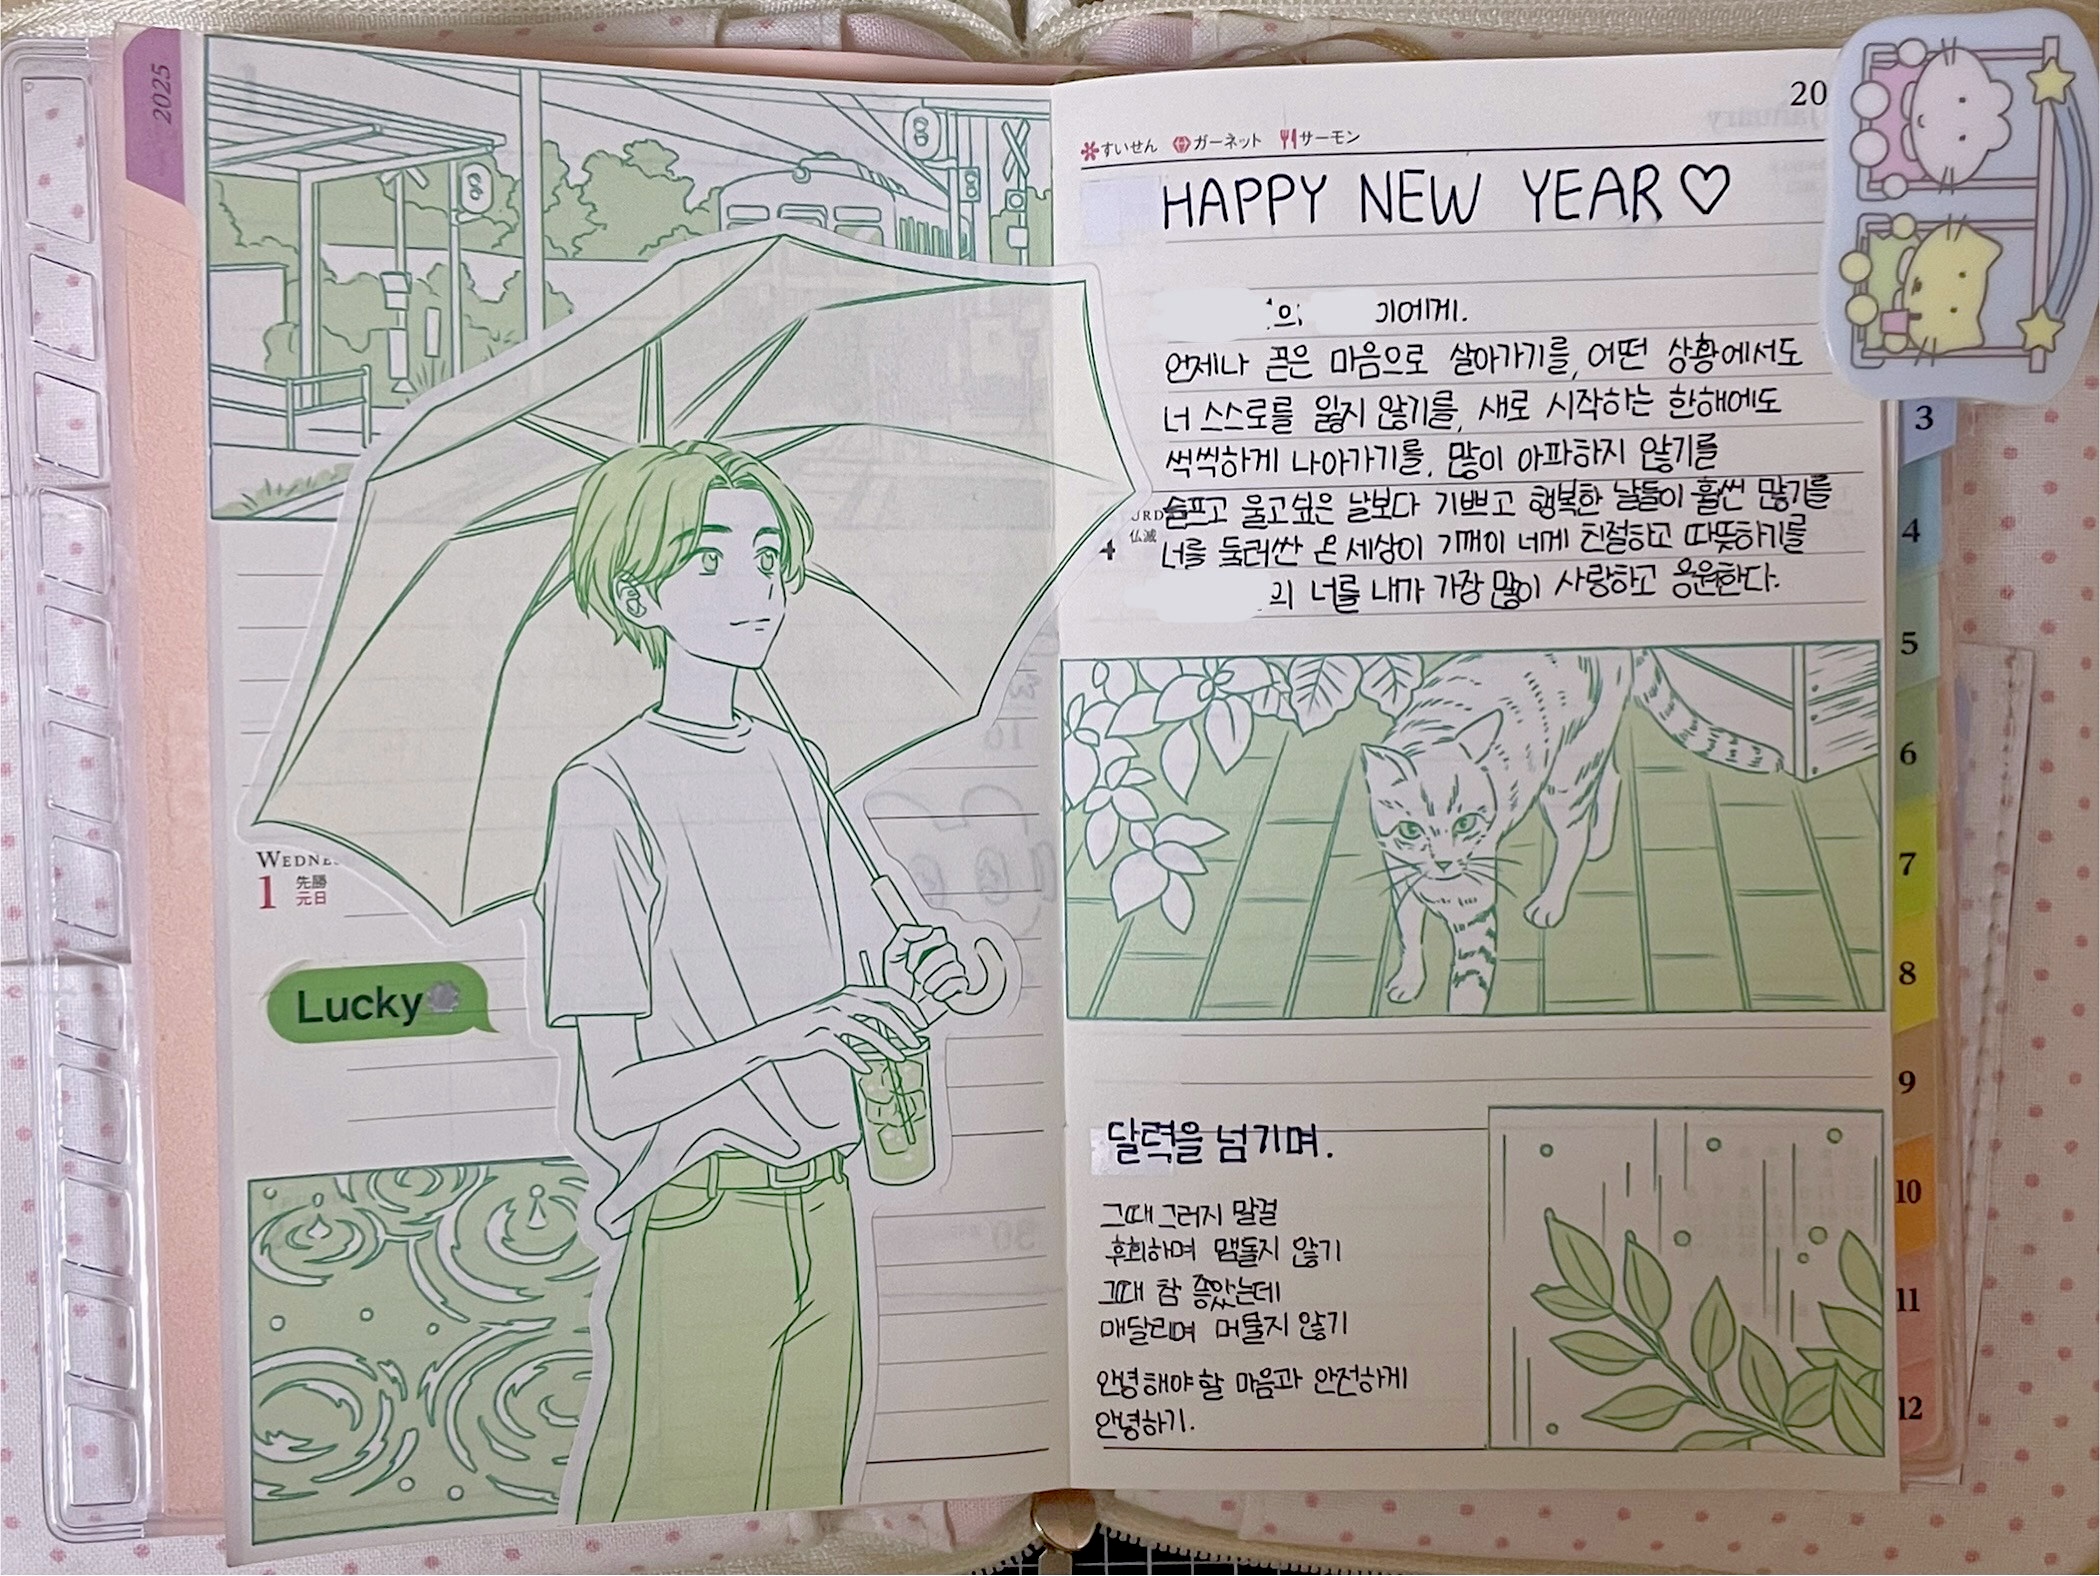 2025
WEDNE
1
先勝
元日
Lucky
20
すいせん ガーネット サーモン
HAPPY NEW YEAR♡
의 기에게.
언제나 곧은 마음으로 살아가기를, 어떤 상황에서도
너 스스로를 잃지 않기를, 새로 시작하는 한해에도
씩씩하게 나아가기를, 많이 아파하지 않기를
슬프고 울고싶은 날보다 기쁘고 행복한 날들이 훨씬 많기를
너를 둘러싼 온 세상이 기꺼이 너에게 친절하고 따뜻하기를
의 너를 내가 가장 많이 사랑하고 응원한다.
URD
4
仏滅
달력을 넘기며.
그때 그러지 말걸
후회하며 맴돌지 않기
그때 참 좋았는데
매달리며 머물지 않기
안녕해야 할 마음과 안전하게
안녕하기.
3
4
5
6
7
8
9
10
11
12